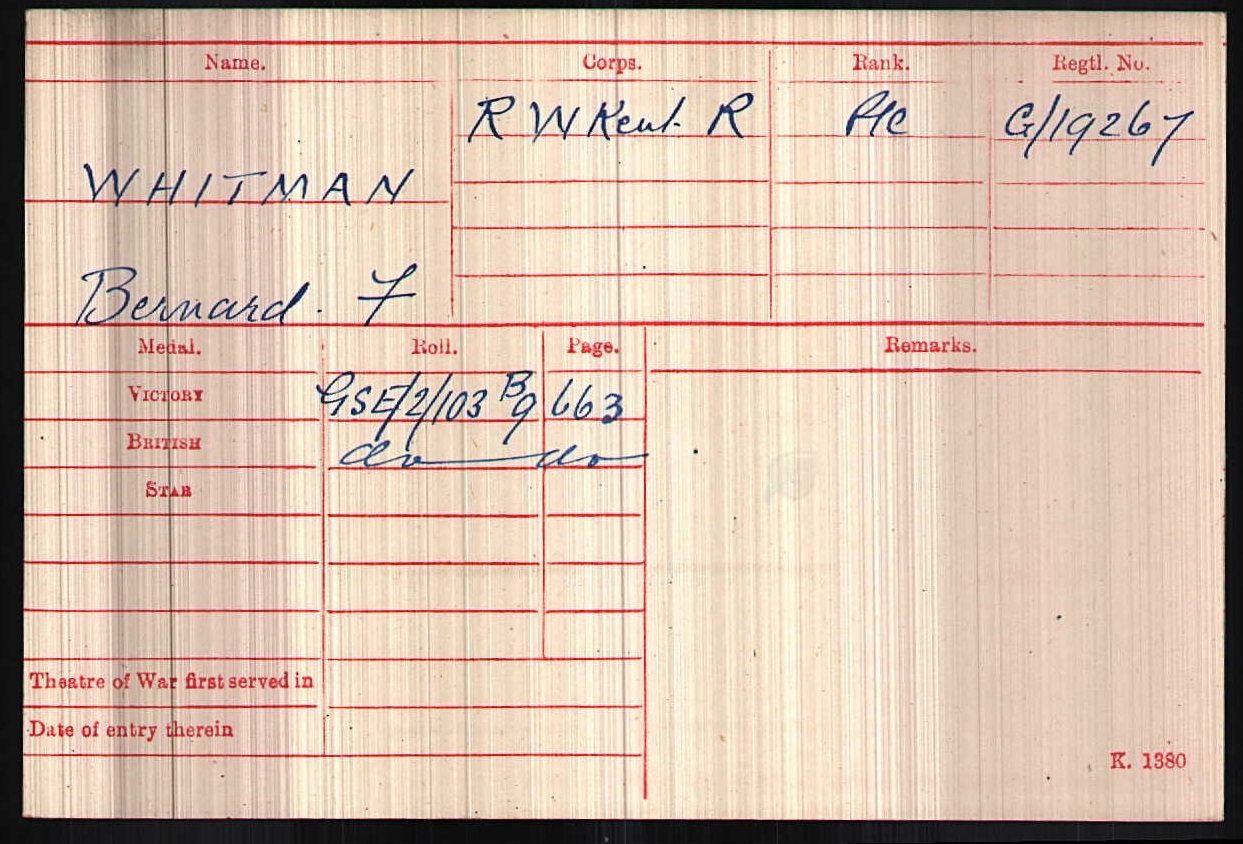 Name. Corps. Rank. Regtl. No.
R W Kent. R Pte G/19267
WHITMAN
Bernard. F
Medal. Roll. Page. Remarks.
VICTORY GSE/2/103 B9 663
BRITISH do do
STAR
Theatre of War first served in
Date of entry therein
K. 1380